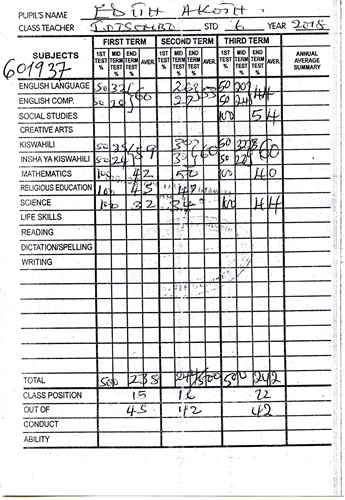 PUPIL'S NAME EDITH AKOTH
CLASS TEACHER STD 6 YEAR 2018
FIRST TERM SECOND TERM THIRD TERM
SUBJECTS 1ST TEST % MID TERM TEST % END TERM TEST % AVER. 1ST TEST % MID TERM TEST % END TERM TEST % AVER. 1ST TEST % MID TERM TEST % END TERM TEST % AVER. ANNUAL AVERAGE SUMMARY
601937
ENGLISH LANGUAGE 50 32 50 44
ENGLISH COMP. 50 28 60 50 24
SOCIAL STUDIES 100 54
CREATIVE ARTS
KISWAHILI 50
INSHA YA KISWAHILI 50 24 60 50 60
MATHEMATICS 100 42 50 100 40
RELIGIOUS EDUCATION 100 45
SCIENCE 100 32 34 100 44
LIFE SKILLS
READING
DICTATION/SPELLING
WRITING
TOTAL 500 238 500 242
CLASS POSITION 15 16 22
OUT OF 45 42 42
CONDUCT
ABILITY